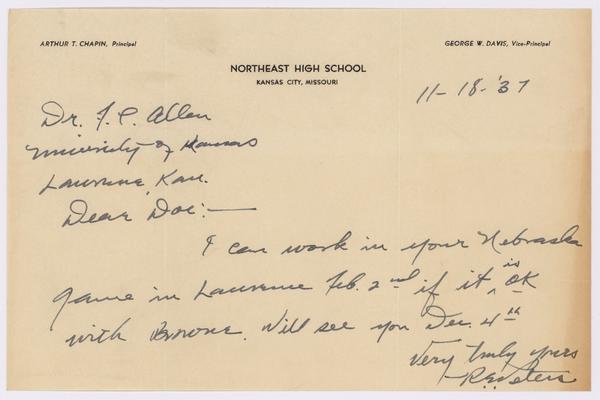 ARTHUR T. CHAPIN, Principal
GEORGE W. DAVIS, Vice-Principal
NORTHEAST HIGH SCHOOL
KANSAS CITY, MISSOURI
11-18-'37
Dr. F. C. Allen
University of Kansas
Lawrence, Kan.
Dear Doc:—
I can work in your Nebraska
game in Lawrence Feb. 2nd if it is OK
with Browne. Will see you Dec. 4th
Very truly yours
R.E. Peters